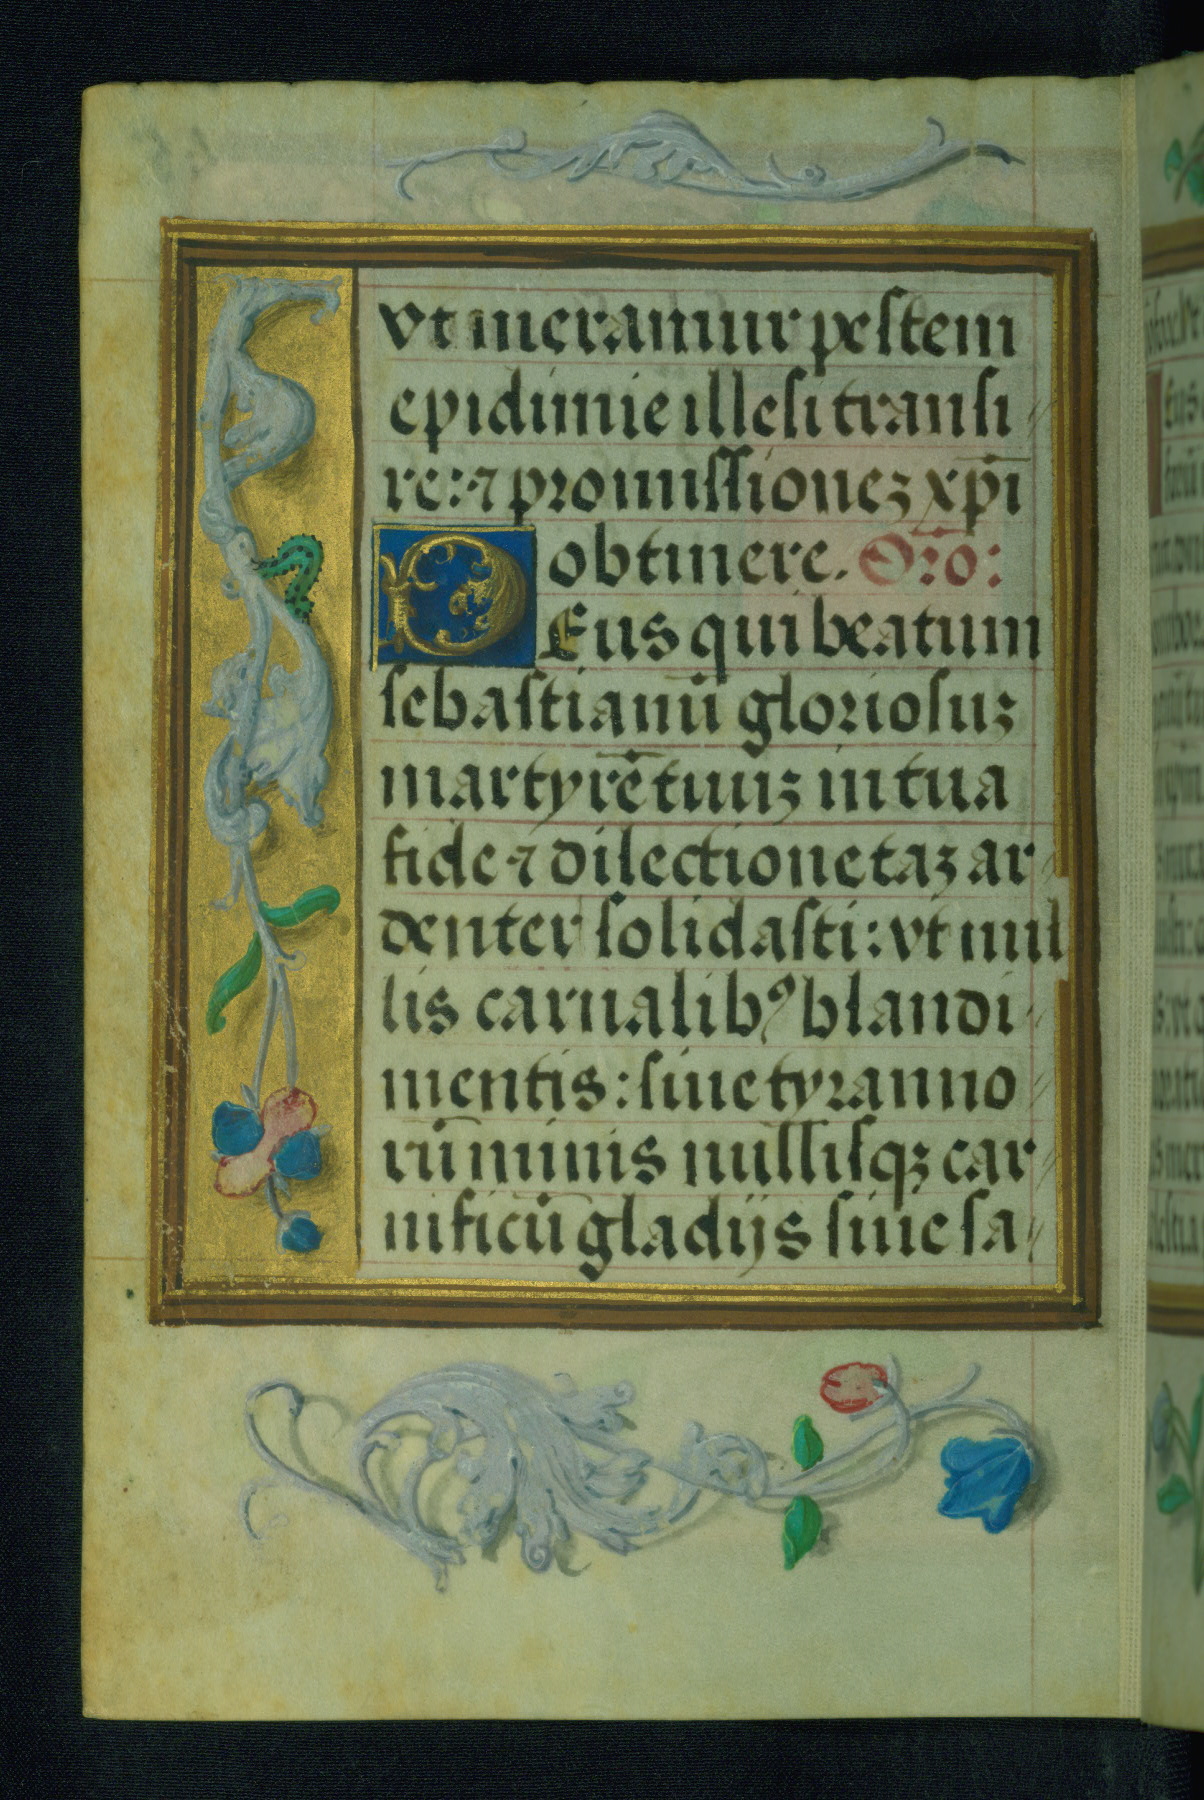 vt mereamur pestem
epidimie illesi transi
re: ⁊ promissionez xp̄i
obtinere. Or̄o:
Deus qui beatum
sebastianū gloriosuz
martyrē tuuz in tua
fide ⁊ dilectione taz ar
denter solidasti: vt nul
lis carnalibꝰ blandi
mentis: siue tyranno
rū minis nullisqꝫ car
nificū gladijs siue sa